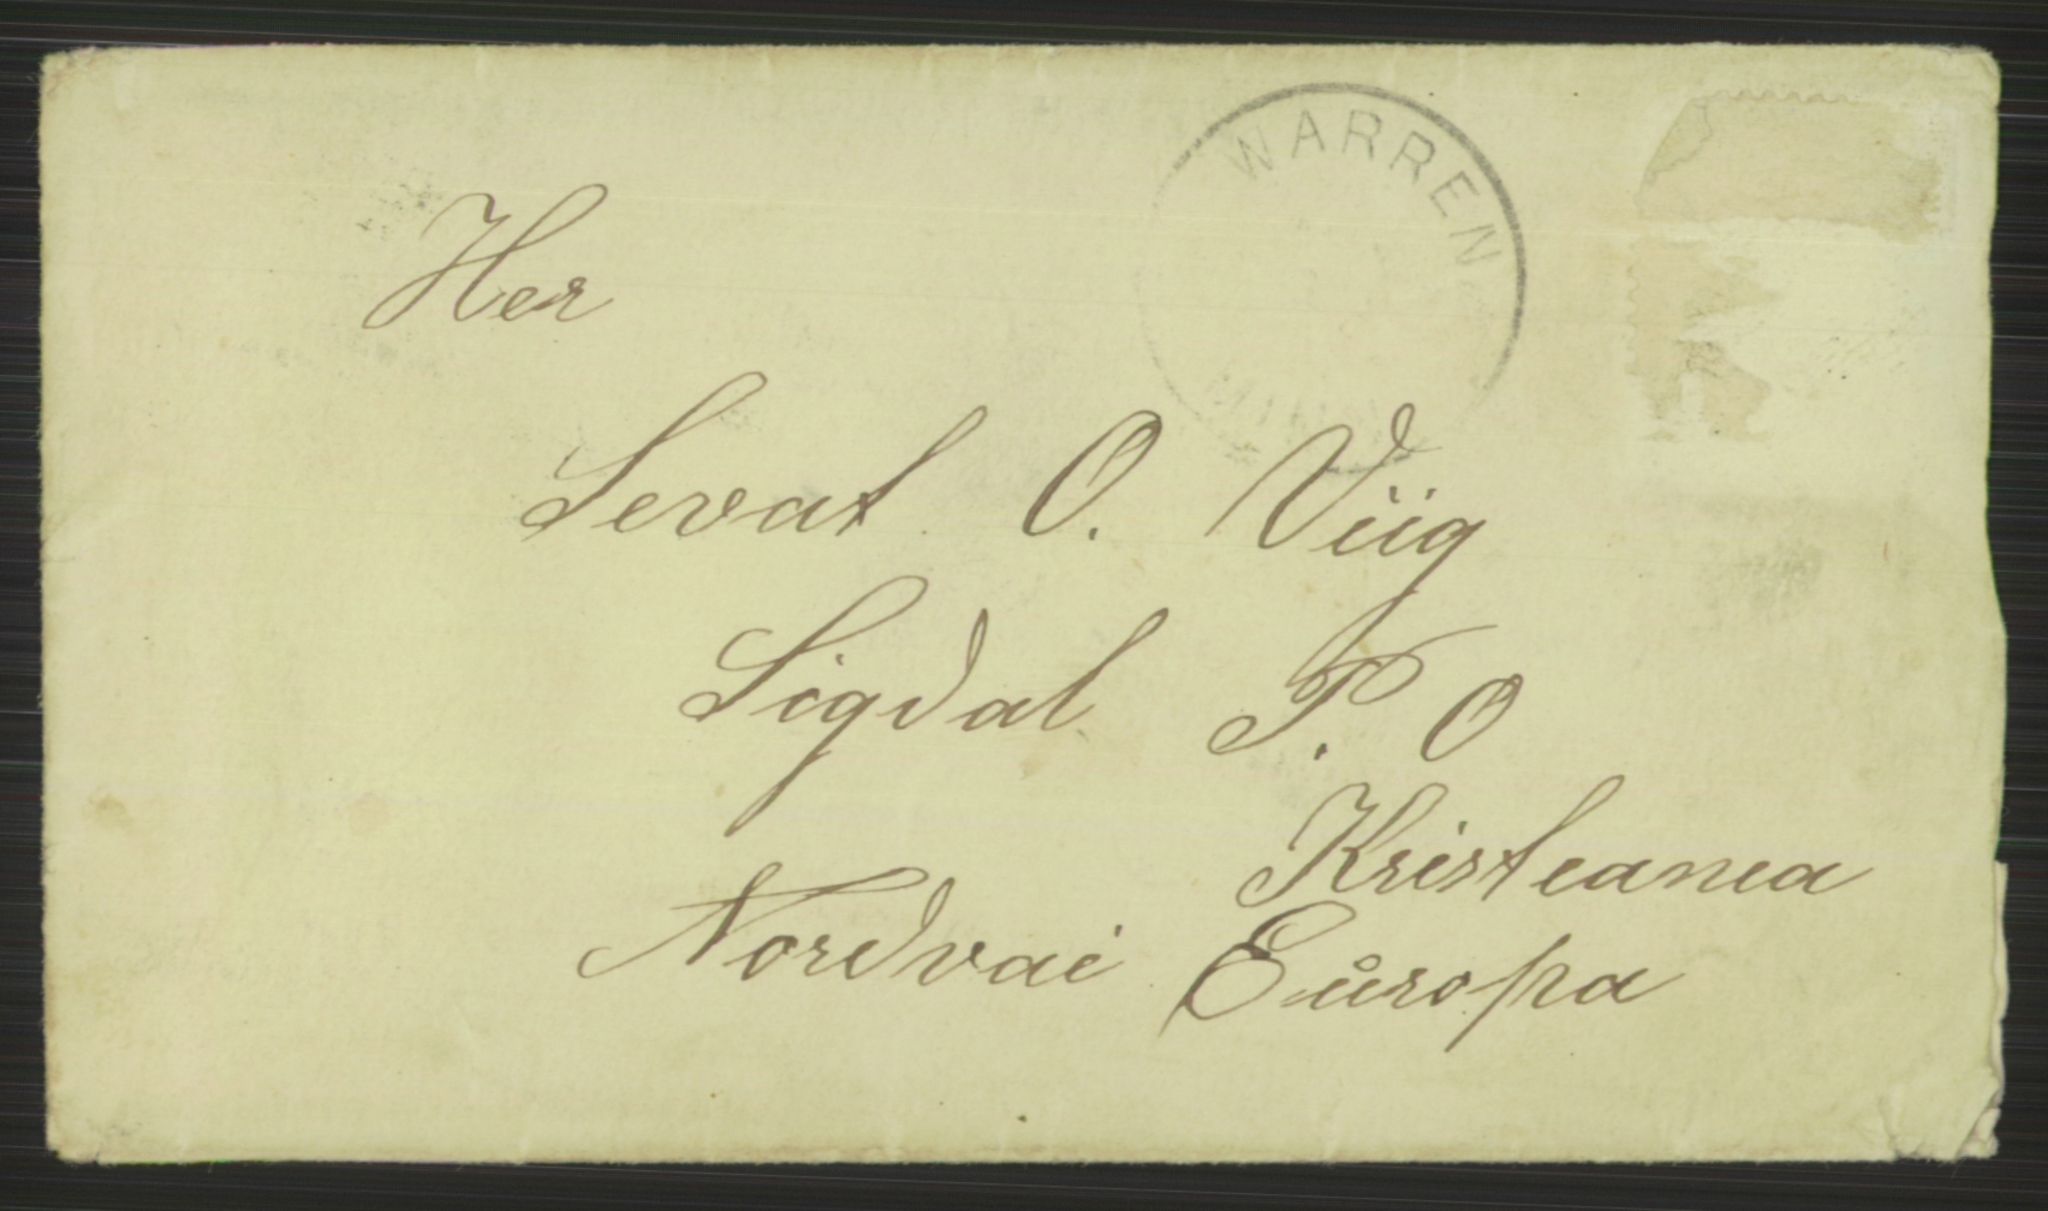 WARREN
Her
Sevat O. Viig
Sigdal P. O
Kristeanea
Nordvai Europa